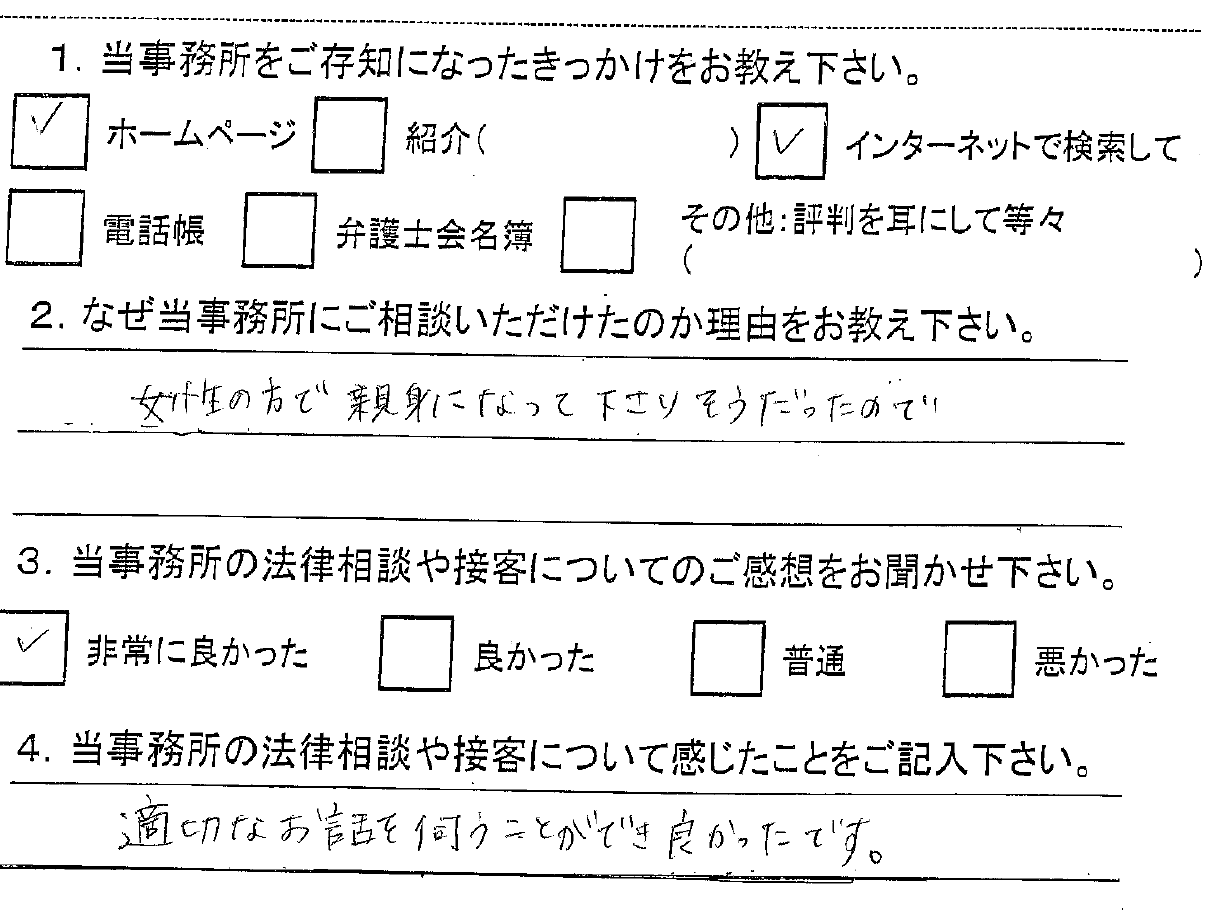 1. 当事務所をご存知になったきっかけをお教え下さい。
✓ ホームページ □ 紹介( ) ✓ インターネットで検索して
□ 電話帳 □ 弁護士会名簿 □ その他:評判を耳にして等々
( )
2. なぜ当事務所にご相談いただけたのか理由をお教え下さい。
女性の方で親身になって下さりそうだったので
3. 当事務所の法律相談や接客についてのご感想をお聞かせ下さい。
✓ 非常に良かった □ 良かった □ 普通 □ 悪かった
4. 当事務所の法律相談や接客について感じたことをご記入下さい。
適切なお話を伺うことができ良かったです。